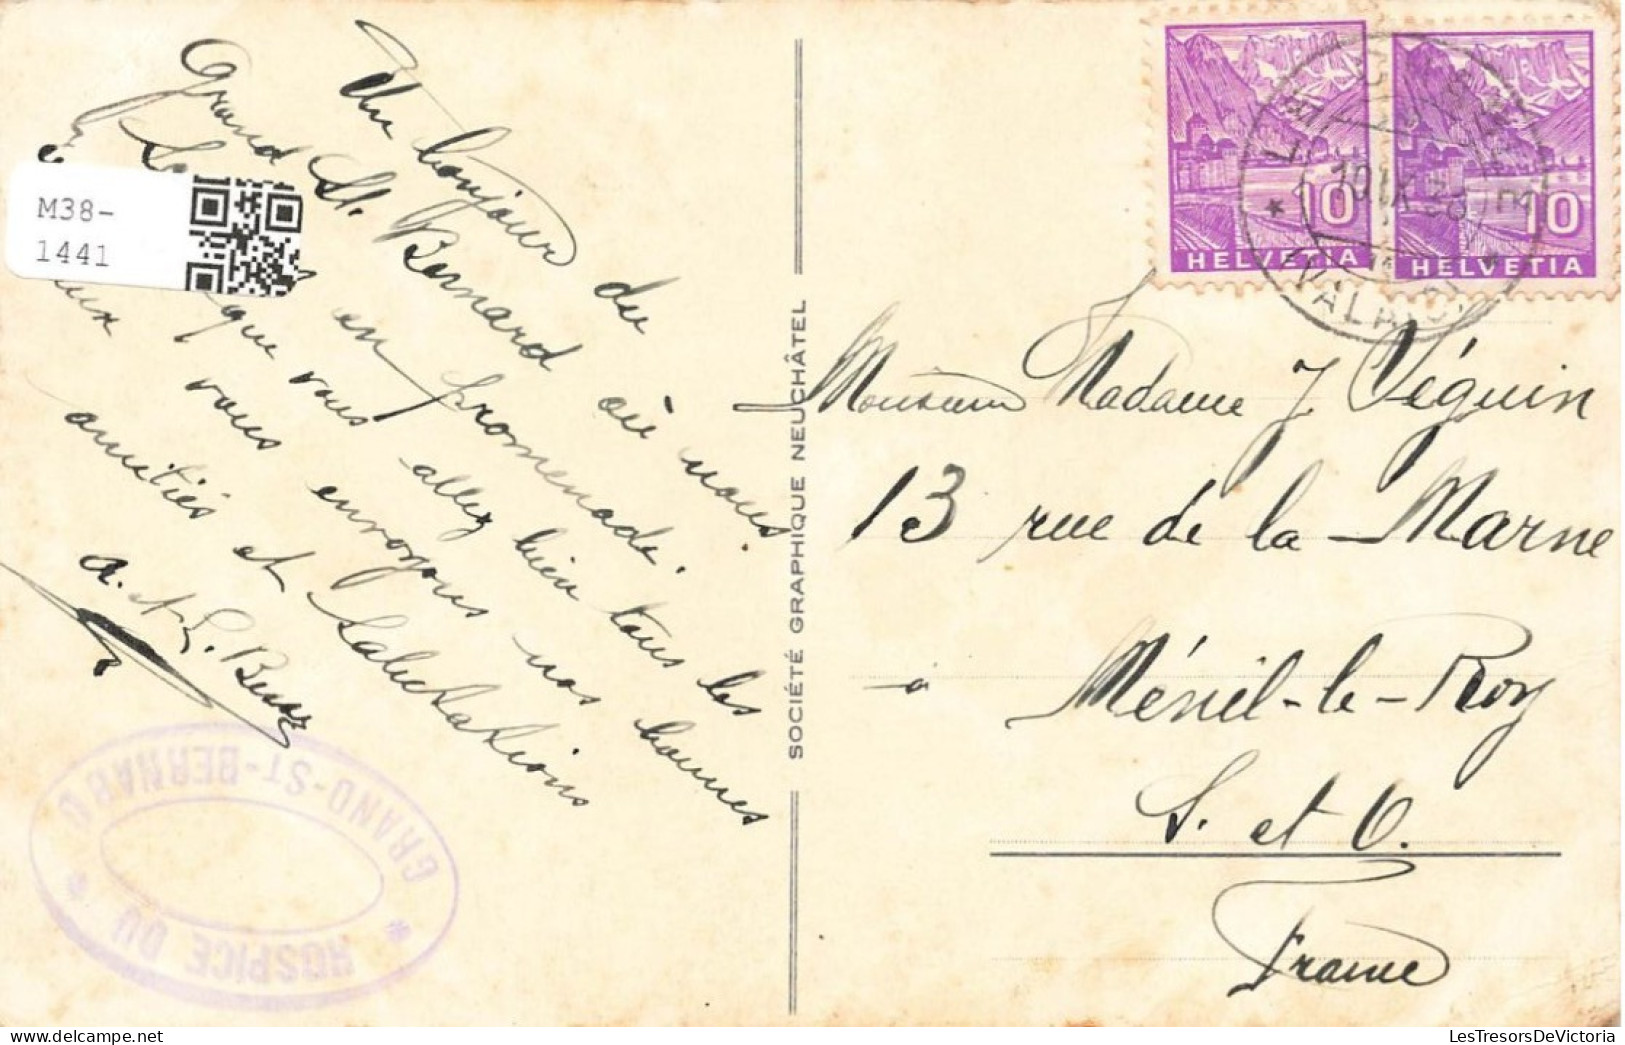 Un bonjour du
Grand St. Bernard où nous
en promenade.
que vous allez bien tous les
vous envoyons nos bonnes
amitiés et Salutations
M38-
1441
SOCIÉTÉ GRAPHIQUE NEUCHÂTEL
HELVETIA
10
HELVETIA
10
VALAIS
Monsieur Madame J Véguin
13 rue de la Marne
à Ménil-le-Roy
S. et O.
France
HOSPICE DU
GRAND-ST-BERNARD
LesTresorsDeVictoria